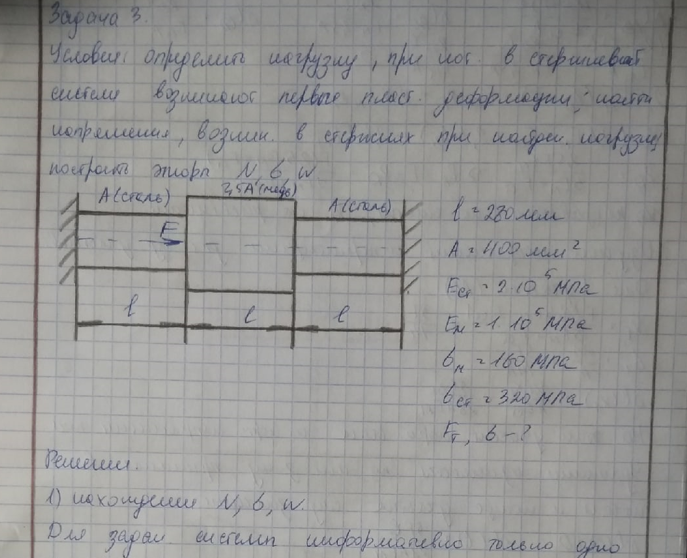 Задача 3.
Условие: определить нагрузку, при кот. в стержневой
системе возникают первые пласт. деформации; найти
напряжения, возник. в стержнях при найден. нагрузке;
построить эпюры N, σ, w
A (сталь) 2,5A (медь) A (сталь)
F
l l l
l = 280 мм
A = 400 мм²
Eст = 2·10⁵ МПа
Eм = 1·10⁵ МПа
σм = 160 МПа
σст = 320 МПа
Fт, σ - ?
Решение.
1) нахождение N, σ, w.
Для задан. системы информативно только одно